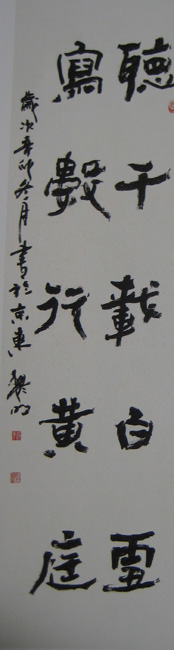 聽千載白雲
寫數行黃庭
歲次辛卯冬月書於京東